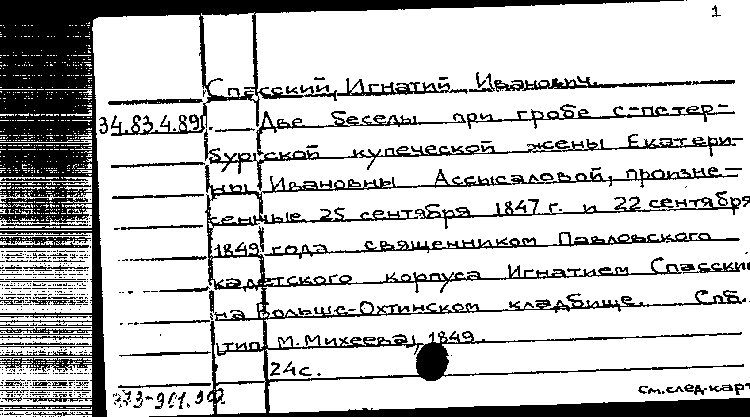 1
Спасский, Игнатий Иванович.
34.83.4.891. Две беседы при гробе с-петер-
бургской купеческой жены Екатери-
ны Ивановны Ассысаловой, произне-
сенные 25 сентября 1847 г. и 22 сентября
1849 года священником Павловского
кадетского корпуса Игнатием Спасским
на Больше-Охтинском кладбище. Спб.
тип. М. Михеева, 1849.
24с.
см.след.карт